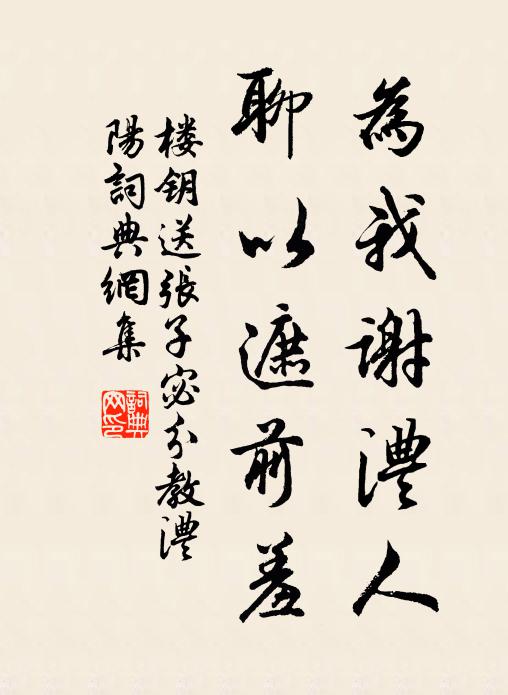 為我謝澧人
聊以遮前羞
楼钥送張子宓分教澧
陽詞典網集
詞典网印